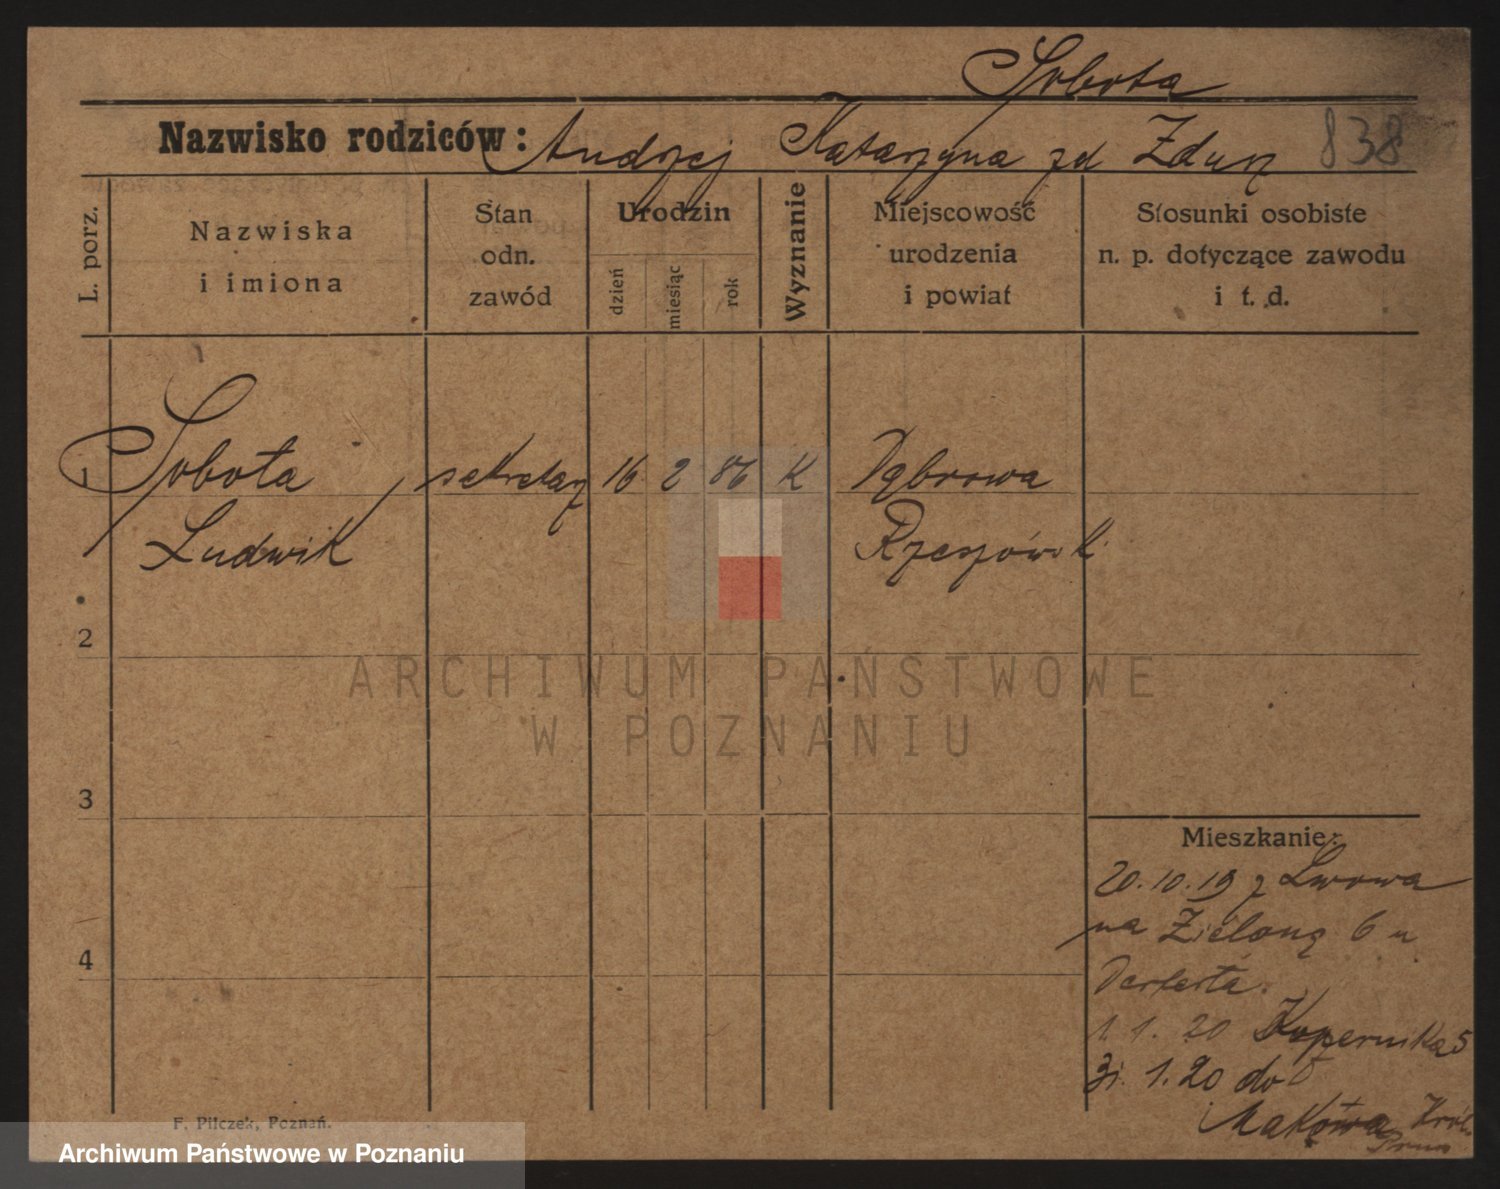 Sobota
Nazwisko rodziców: Andrzej Katarzyna zd Zdun 838
L. porz.
Nazwiska
i imiona
Stan
odn.
zawód
Urodzin
dzień
miesiąc
rok
Wyznanie
Miejscowość
urodzenia
i powiat
Stosunki osobiste
n. p. dotyczące zawodu
i t. d.
1 Sobota sekretarz 16 2 86 K Dąbrowa
Ludwik Rzeszówski
2
ARCHIWUM PAŃSTWOWE
W POZNANIU
3
Mieszkanie:
20.10.19 z Lwowa
na Zieloną 6 u
4
1.1.20 Kopernika 5
31.1.20 do
Makowa
F. Pilczek, Poznań.
Archiwum Państwowe w Poznaniu